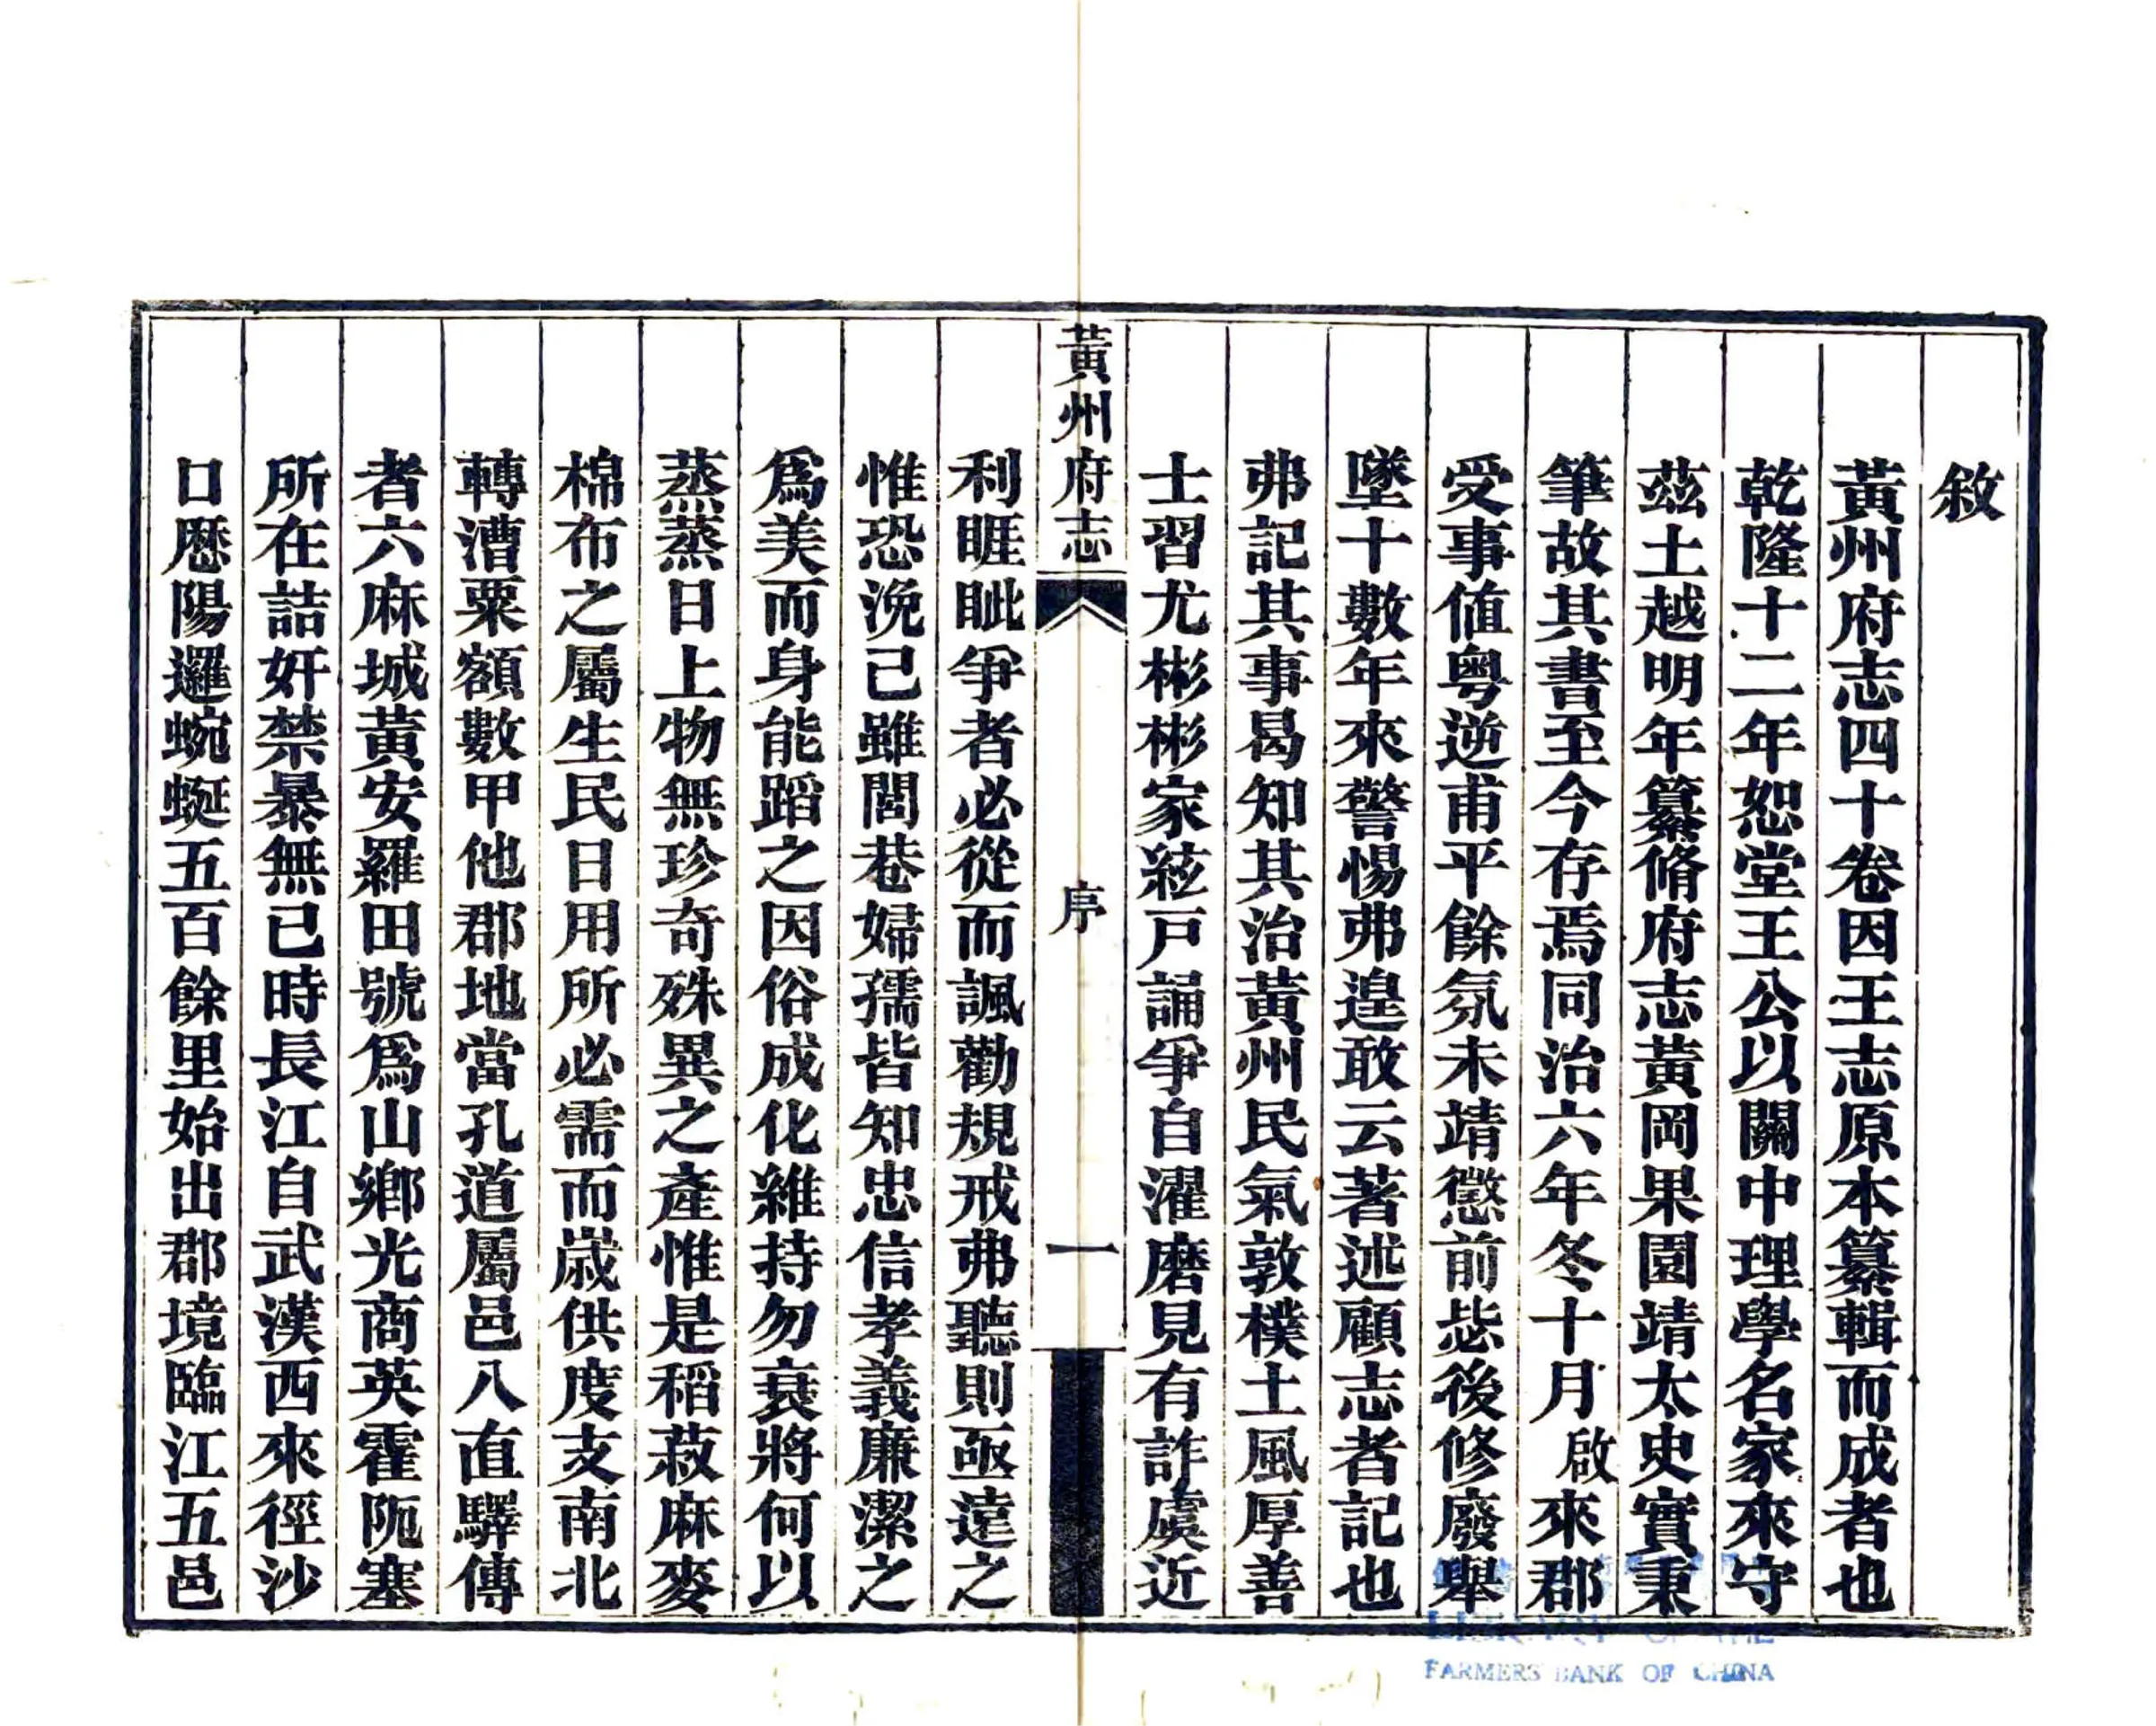 敘
黃州府志四十卷因王志原本纂輯而成者也
乾隆十二年恕堂王公以關中理學名家來守
茲土越明年纂脩府志黃岡果園靖太史實秉
筆故其書至今存焉同治六年冬十月啟來郡
受事値粵逆甫平餘氛未靖懲前毖後修廢舉
墜十數年來警惕弗遑敢云著述顧志者記也
弗記其事曷知其治黃州民氣敦樸土風厚善
士習尤彬彬家絃戸誦爭自濯磨見有詐虞近
黃州府志
序
一
利睚眦爭者必從而諷勸規戒弗聽則亟遠之
惟恐浼己雖閭巷婦孺皆知忠信孝義廉潔之
爲美而身能蹈之因俗成化維持勿衰將何以
蒸蒸日上物無珍奇殊異之產惟是稻菽麻麥
棉布之屬生民日用所必需而歲供度支南北
轉漕粟額數甲他郡地當孔道屬邑八直驛傳
者六麻城黃安羅田號爲山鄉光商英霍阨塞
所在詰奸禁暴無已時長江自武漢西來徑沙
口歷陽邏蜿蜒五百餘里始出郡境臨江五邑
LIBRARY OF THE
FARMERS BANK OF CHINA